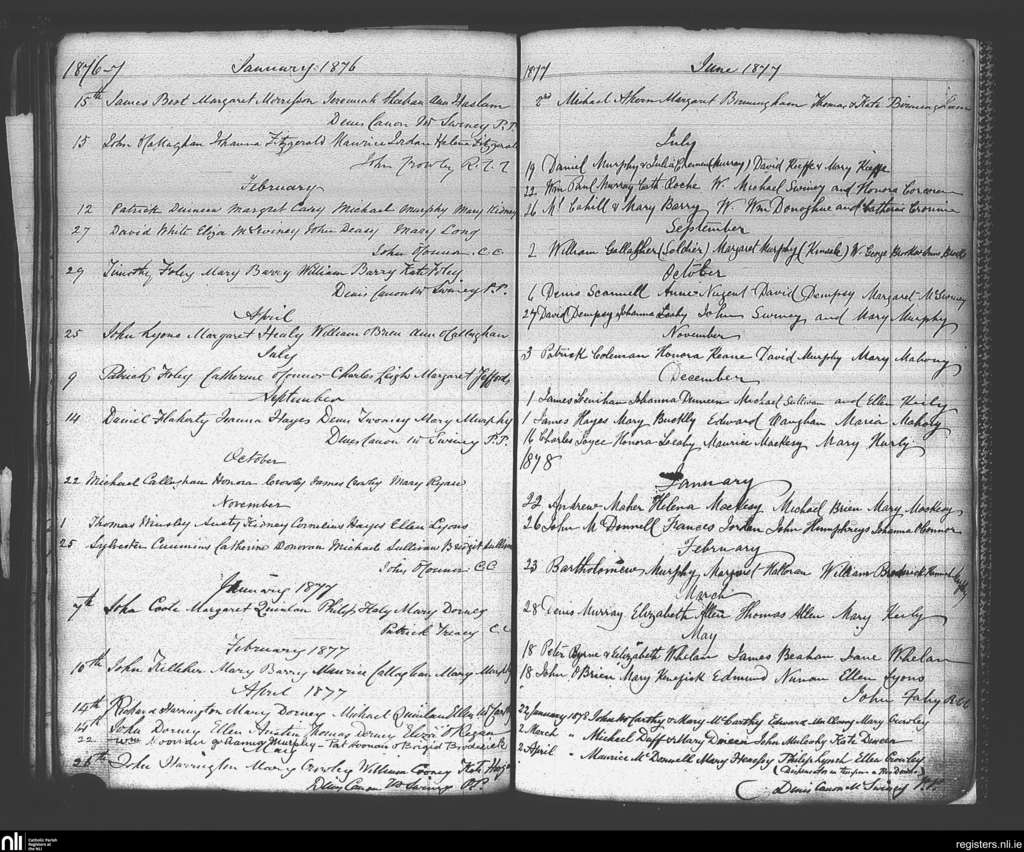 1876-7 January 1876
15th James Best Margaret Morrisson Jeremiah Sheehan Ann Haslam
Denis Canon McSwiney P.P.
15 John O'Callaghan Johanna Fitzgerald Maurice Jordan Helena Fitzgerald
John Crowley R.C.C
February
12 Patrick Duineen Margret Carey Michael Murphy Mary Kidney
27 David White Eliza McSwiney John Deasy Mary Long
John O'Connor C.C.
29 Timothy Foley Mary Barry William Barry Kate Foley
Denis Canon McSwiney P.P.
April
25 John Lyons Margaret Healy William O'Brien Ann O'Callaghan
July
9 Patrick Foley Catherine O'Connor Charles Leigh Margaret Jeffords
September
14 Daniel Flaherty Joanna Hayes Denis Twomey Mary Murphy
Denis Canon McSwiney P.P.
October
22 Michael Callaghan Honora Crowly James Crowly Mary Ryan
November
1 Thomas Kidney Cornelius Hayes Ellen Lyons
25 Sylvester Cummins Catherine Donovan Michael Sullivan Bridgit Sullivan
John O'Connor C.C.
January 1877
7th John Coole Margaret Quinlan Philip Haly Mary Dorney
Patrick Treacy C.C
February 1877
10th John Kelleher Mary Barry Maurice Callaghan Mary Murphy
April 1877
14th Richard Harrington Mary Dorney Michael Quinlan Ellen McCarthy
14th John Dorney Ellen Austin Thomas Dorney Eliza O'Regan
22 Wm Murphy Pat Noonan & Brigid Broderick
26th John Harrington Mary Crowley William Cooney Kate
Denis Canon McSwiney P.P.
1877 June 1877
2nd Michael Ahern Margaret Birmingham Thomas & Kate Birmingham
July
19 Daniel Murphy & Julia (Murray) David Keeffe & Mary Keeffe
22 Wm Paul Murray Cath Roche W. Michael Swiney and Honora Corcoran
26 Ml Cahill & Mary Barry W Wm Donoghue and Catherine Cronin
September
2 William Gallagher (Soldier) Margaret Murphy (Kinsale) W. George
October
6 Denis Scannell Anne Nugent David Dempsy Margaret McSwiney
27 David Dempsy Johanna Leahy John Swiney and Mary Murphy
November
3 Patrick Coleman Honora Keane David Murphy Mary Mahony
December
1 James Johanna Dunneen Michael Sullivan and Ellen
1 James Hayes Mary Buckly Edward Vaughan Maria Mahony
16 Charles Joyce Honora Leahy Maurice Mackesy Mary Hurly
1878
January
22 Andrew Maher Helena Mackesy Michael Brien Mary Mackesy
26 John McDonnell Frances Jordan John Humphreys Johanna O'Connor
February
23 Bartholomew Murphy Margaret Halloran William Broderick
March
28 Denis Murray Elizabeth Allen Thomas Allen Mary
May
18 Peter Byrne & Elizabeth Whelan James Beahan Jane Whelan
18 John O'Brien Mary Kenefick Edmund Nunan Ellen Lyons
John Fahy R.C.C
22 January 1878 John McCarthy & Mary McCarthy Edward Mary Crowley
2 March " Michael Duff & Mary Dineen John Mulcahy Kate Dineen
2 April " Maurice McDonnell Mary Henessy Philip Lynch Ellen Crowley
Denis Canon McSwiney P.P.
nli Catholic Parish Registers at the NLI
registers.nli.ie